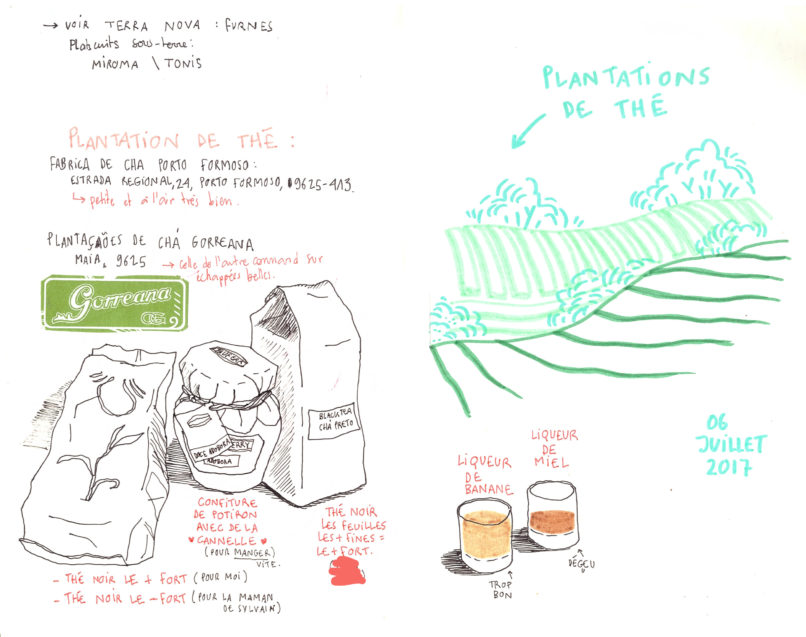 → VOIR TERRA NOVA : FURNES
Plats cuits sous-terre :
MIROMA \ TONIS
PLANTATION DE THÉ :
FABRICA DE CHA PORTO FORMOSO :
ESTRADA REGIONAL, 24, PORTO FORMOSO, 9625-413.
↳ petite et a l'air très bien.
PLANTAÇÕES DE CHÁ GORREANA
MAIA, 9625 → celle de l'autre command sur
échappées belles.
Gorreana
BLACK TEA
CHÁ PRETO
CONFITURE
DE POTIRON
AVEC DE LA
♥ CANNELLE ♥
(POUR MANGER)
VITE.
THÉ NOIR
LES FEUILLES
LES + FINES =
LE + FORT.
- THÉ NOIR LE + FORT (POUR MOI)
- THÉ NOIR LE - FORT (POUR LA MAMAN
DE SYLVAIN)
PLANTATIONS
DE THÉ
06
JUILLET
2017
LIQUEUR
DE
BANANE
LIQUEUR
DE
MIEL
TROP
BON
DÉGEU